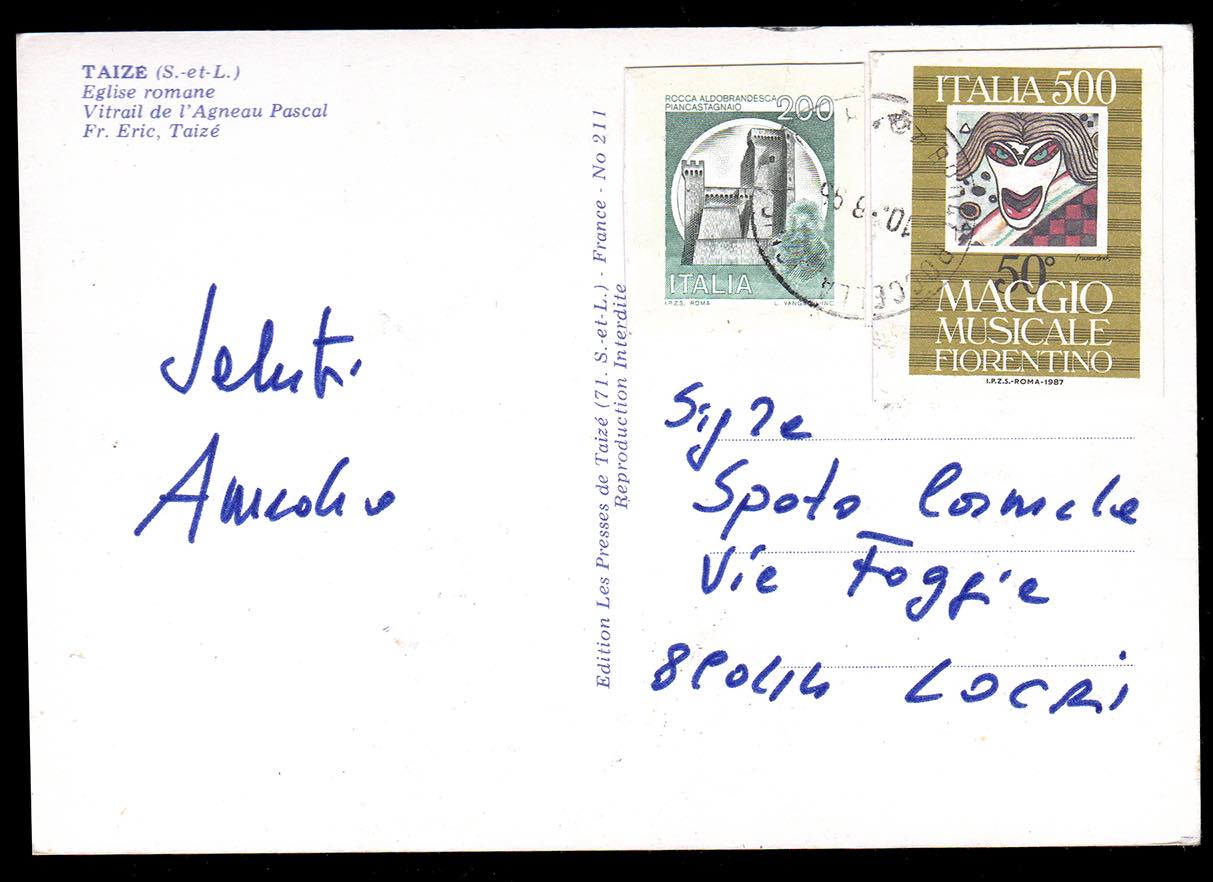 TAIZE (S.-et-L.)
Eglise romane
Vitrail de l'Agneau Pascal
Fr. Eric, Taizé
Saluti
Amedeo
Edition Les Presses de Taizé (71. S.-et-L.) - France - No 211
Reproduction Interdite
ROCCA ALDOBRANDESCA
PIANCASTAGNAIO
200
ITALIA
I.P.Z.S. ROMA
ITALIA 500
50°
MAGGIO
MUSICALE
FIORENTINO
I.P.Z.S.-ROMA-1987
10.-8
Sig.ra
Spoto Carmela
Via Foggia
89044 LOCRI